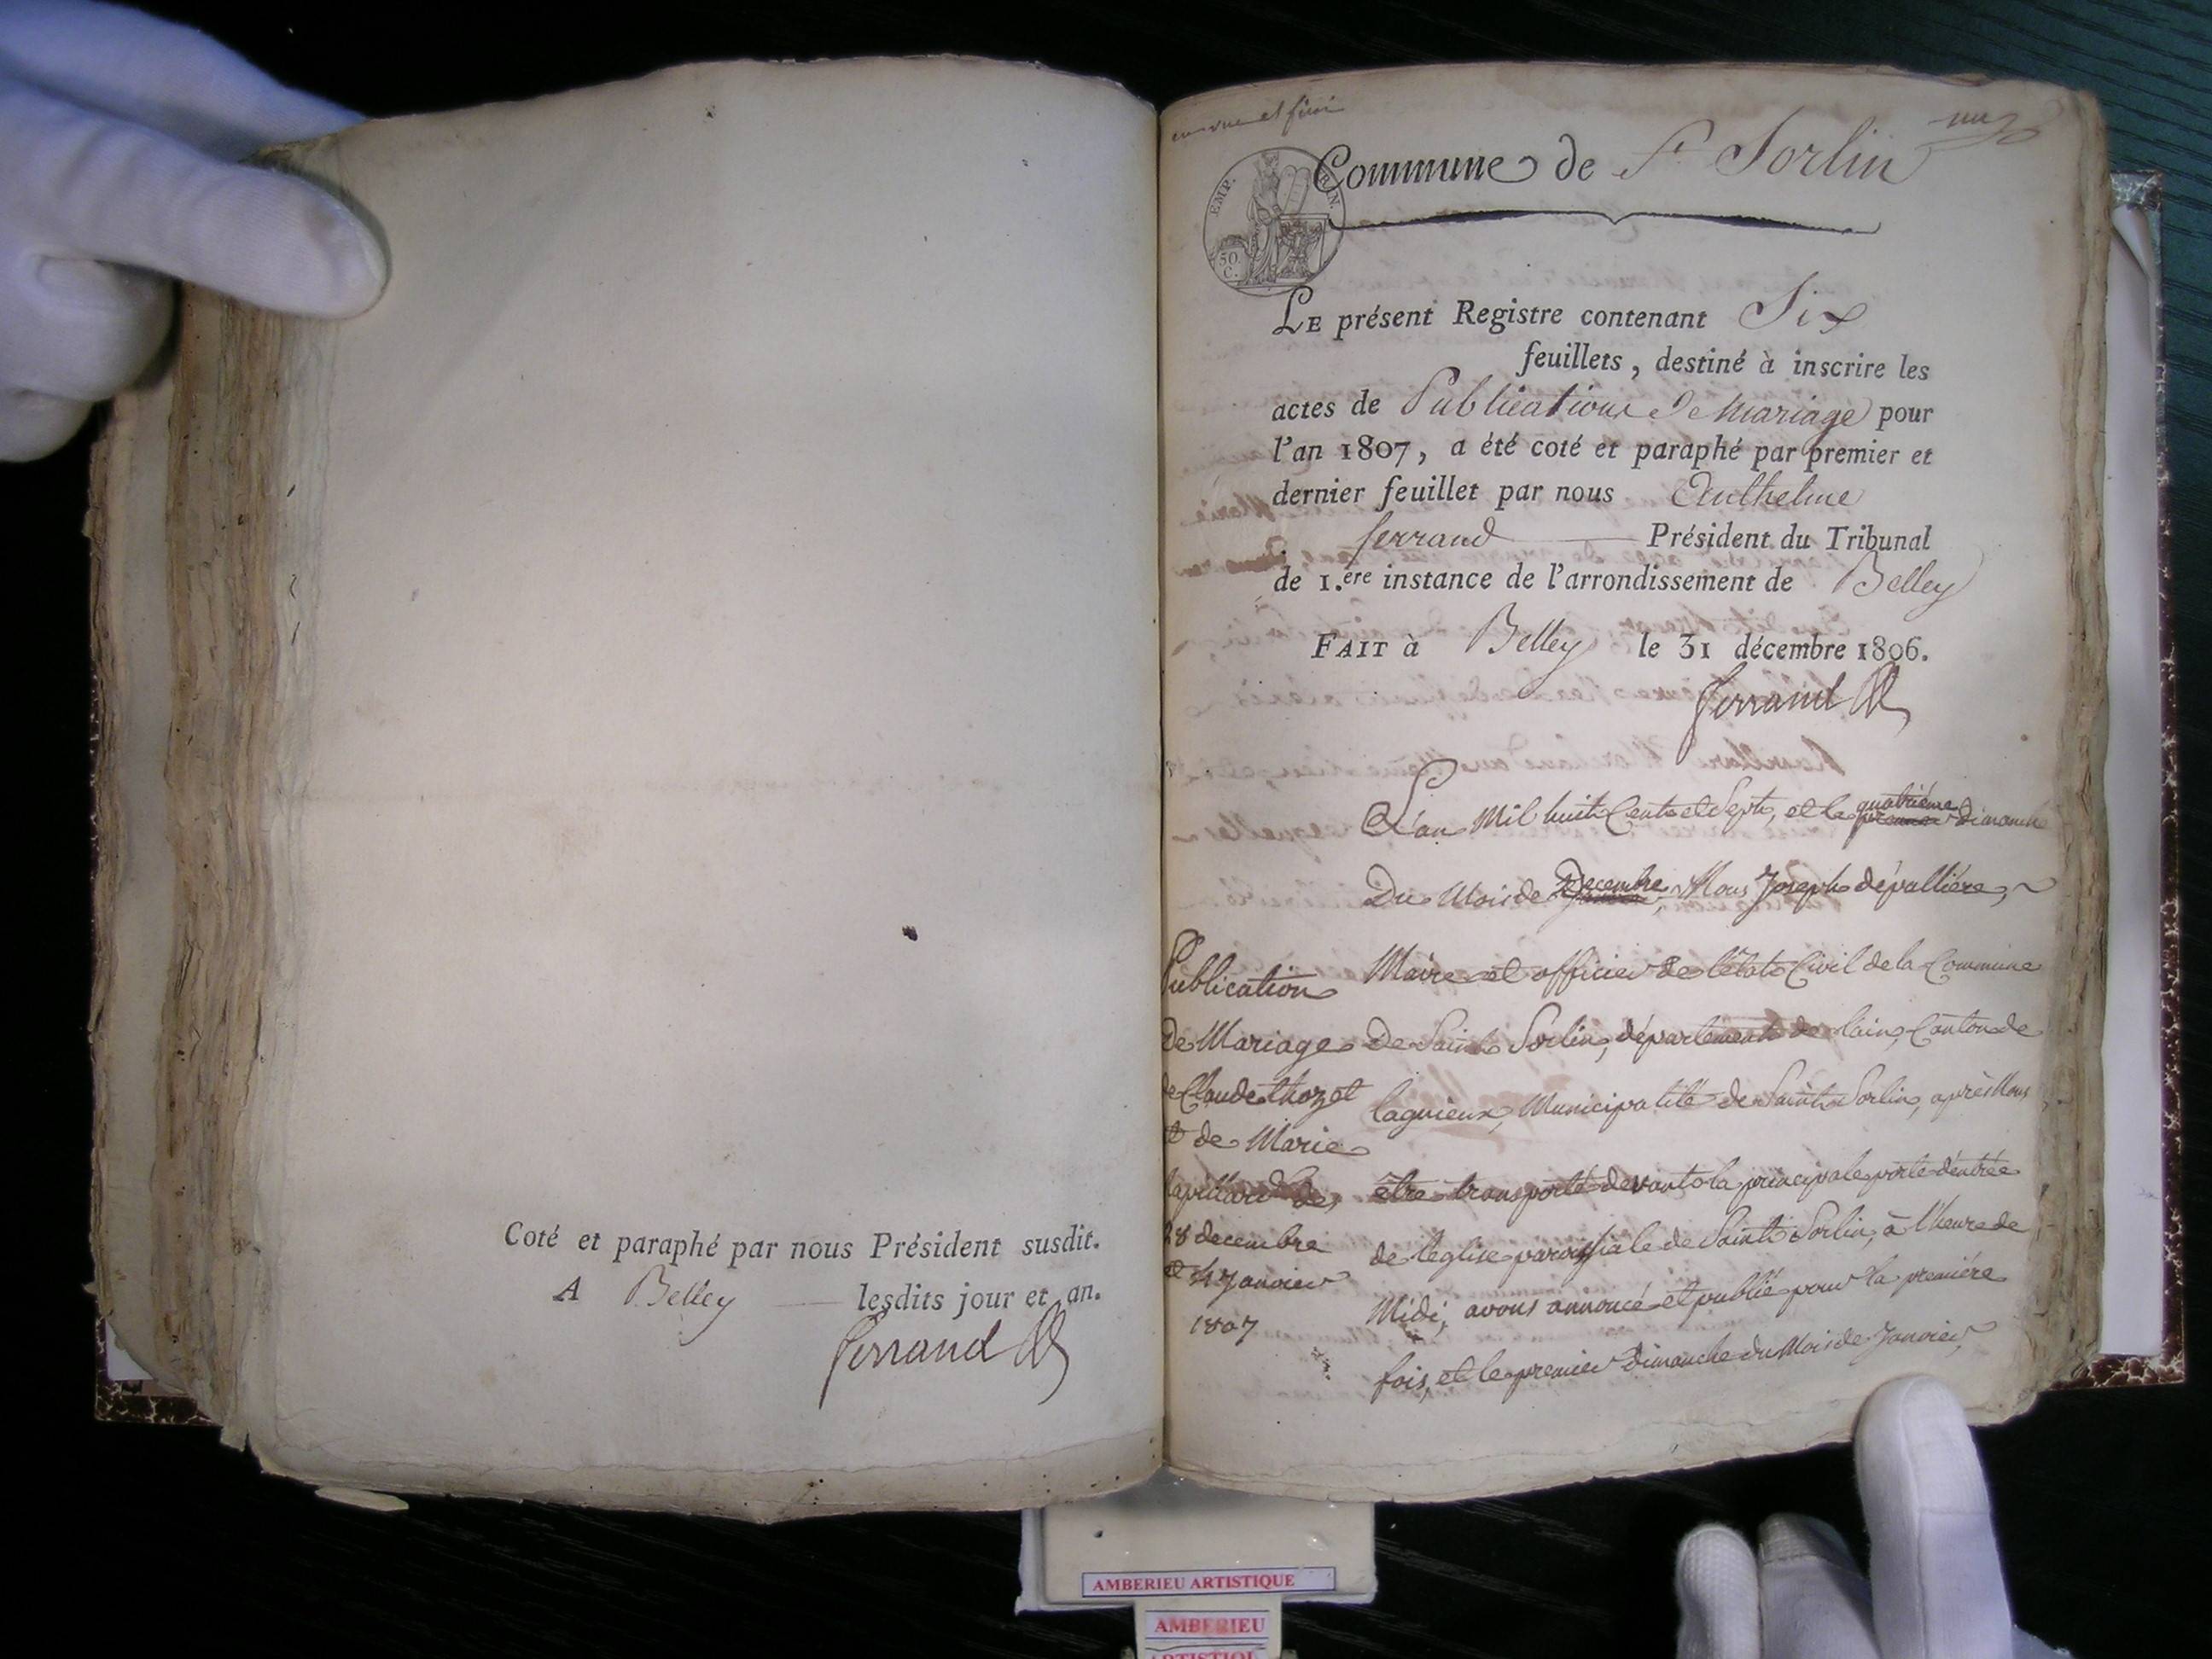 Coté et paraphé par nous Président susdit.
A Belley lesdits jour et an.
Ferrand
et fini
Commune de St. Sorlin
EMP.
50.
C.
LE présent Registre contenant Six
feuillets, destiné à inscrire les
actes de Publications De Mariage pour
l'an 1807, a été coté et paraphé par premier et
dernier feuillet par nous Anthelme
ferrand Président du Tribunal
de 1.ere instance de l'arrondissement de Belley
FAIT à Belley le 31 décembre 1806.
Ferrand
L'an Mil huit Cents et Sept, et le quatriéme premier dimanche
Du Mois de Decembre Janvier, Nous Joseph dépalliére,
Maire et officier de l'état Civil de la Commune
De Saint Sorlin, département de lain, Canton de
lagnieux, Municipalité de Saint Sorlin, après Nous
être transporté devant la principale porte d'entrée
de léglise paroissiale de Saint Sorlin, à l'heure de
Midi, avons annoncé et publié pour la premiére
fois, et le premier dimanche du Mois de Janvier,
Publication
De Mariage
de Claude thozet
et de Marie
28 decembre
et 4 Janvier
1807
AMBERIEU ARTISTIQUE
AMBERIEU
ARTISTIQUE